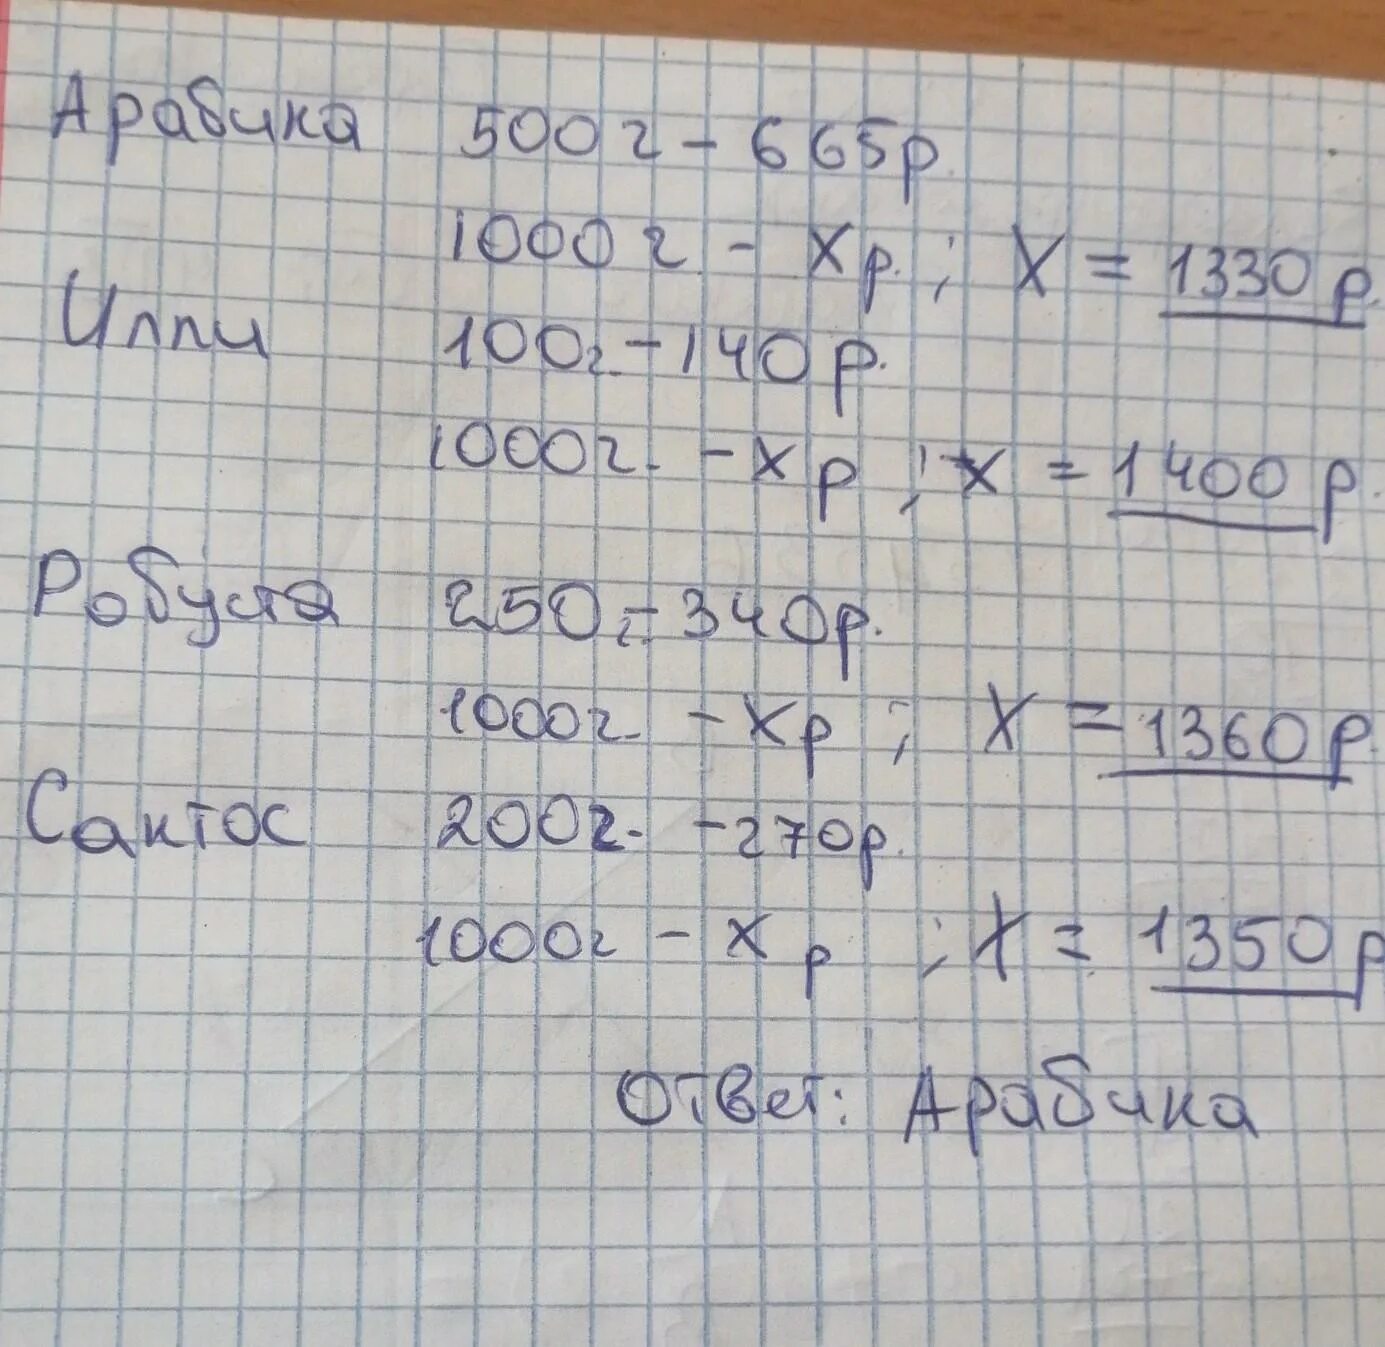 Арабика 500 г - 665 р.
1000 г - Xр.; X = 1330 р.
Илли 100г. - 140 р.
1000г. - Xр ; X = 1400 р.
Робуста 250г. - 340р.
1000г. - Xр ; X = 1360 р
Сактос 200г. - 270р.
1000г - X р ; X = 1350 р
Ответ: Арабика